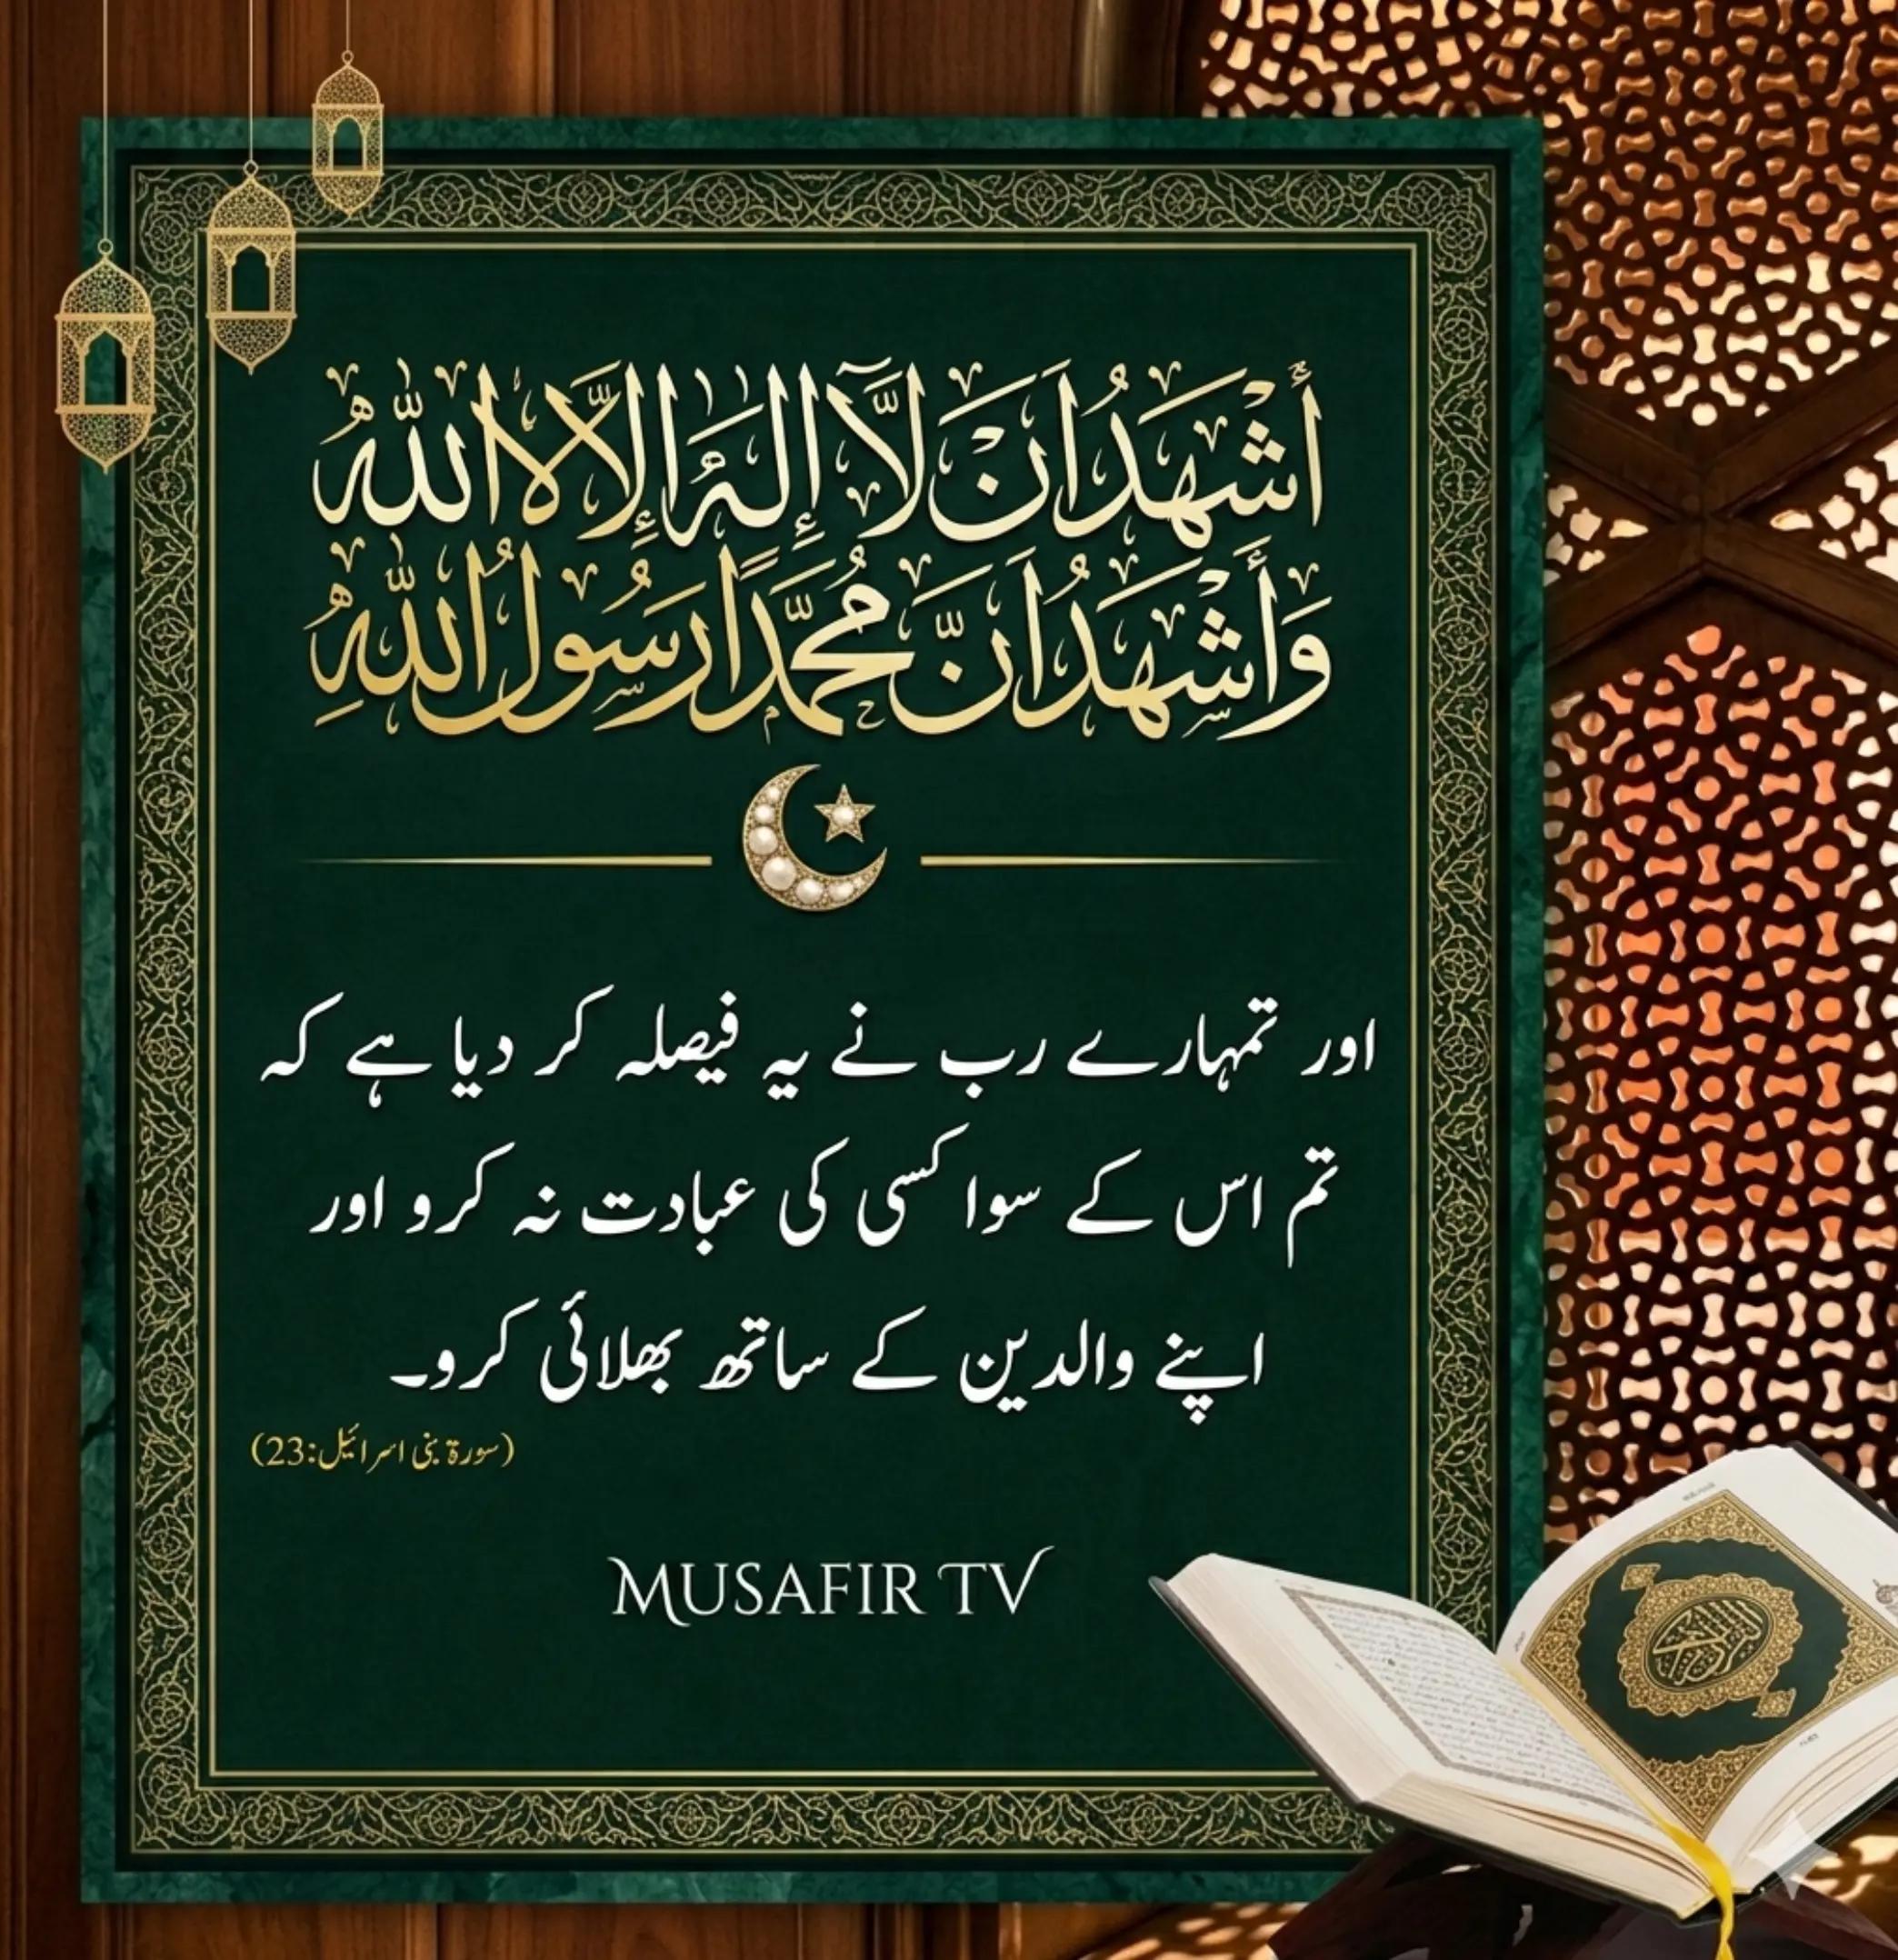 أَشْهَدُ اَنْ لَّآ إِلٰهَ إِلَّا اللهُ
وَأَشْهَدُ اَنَّ مُحَمَّدًا رَسُولُ اللهِ
اور تمہارے رب نے یہ فیصلہ کر دیا ہے کہ
تم اس کے سوا کسی کی عبادت نہ کرو اور
اپنے والدین کے ساتھ بھلائی کرو۔
(سورۃ بنی اسرائیل:23)
MUSAFIR TV